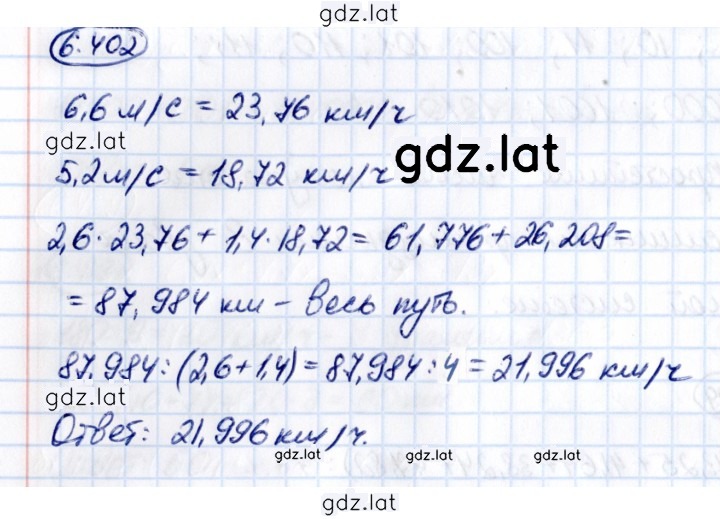 gdz.lat
6.402
6,6 м/с = 23,76 км/ч
gdz.lat
gdz.lat
5,2 м/с = 18,72 км/ч
2,6 · 23,76 + 1,4 · 18,72 = 61,776 + 26,208 =
= 87,984 км – весь путь.
87.984 : (2,6 + 1,4) = 87,984 : 4 = 21,996 км/ч
Ответ: 21,996 км/ч.
gdz.lat
gdz.lat
gdz.lat